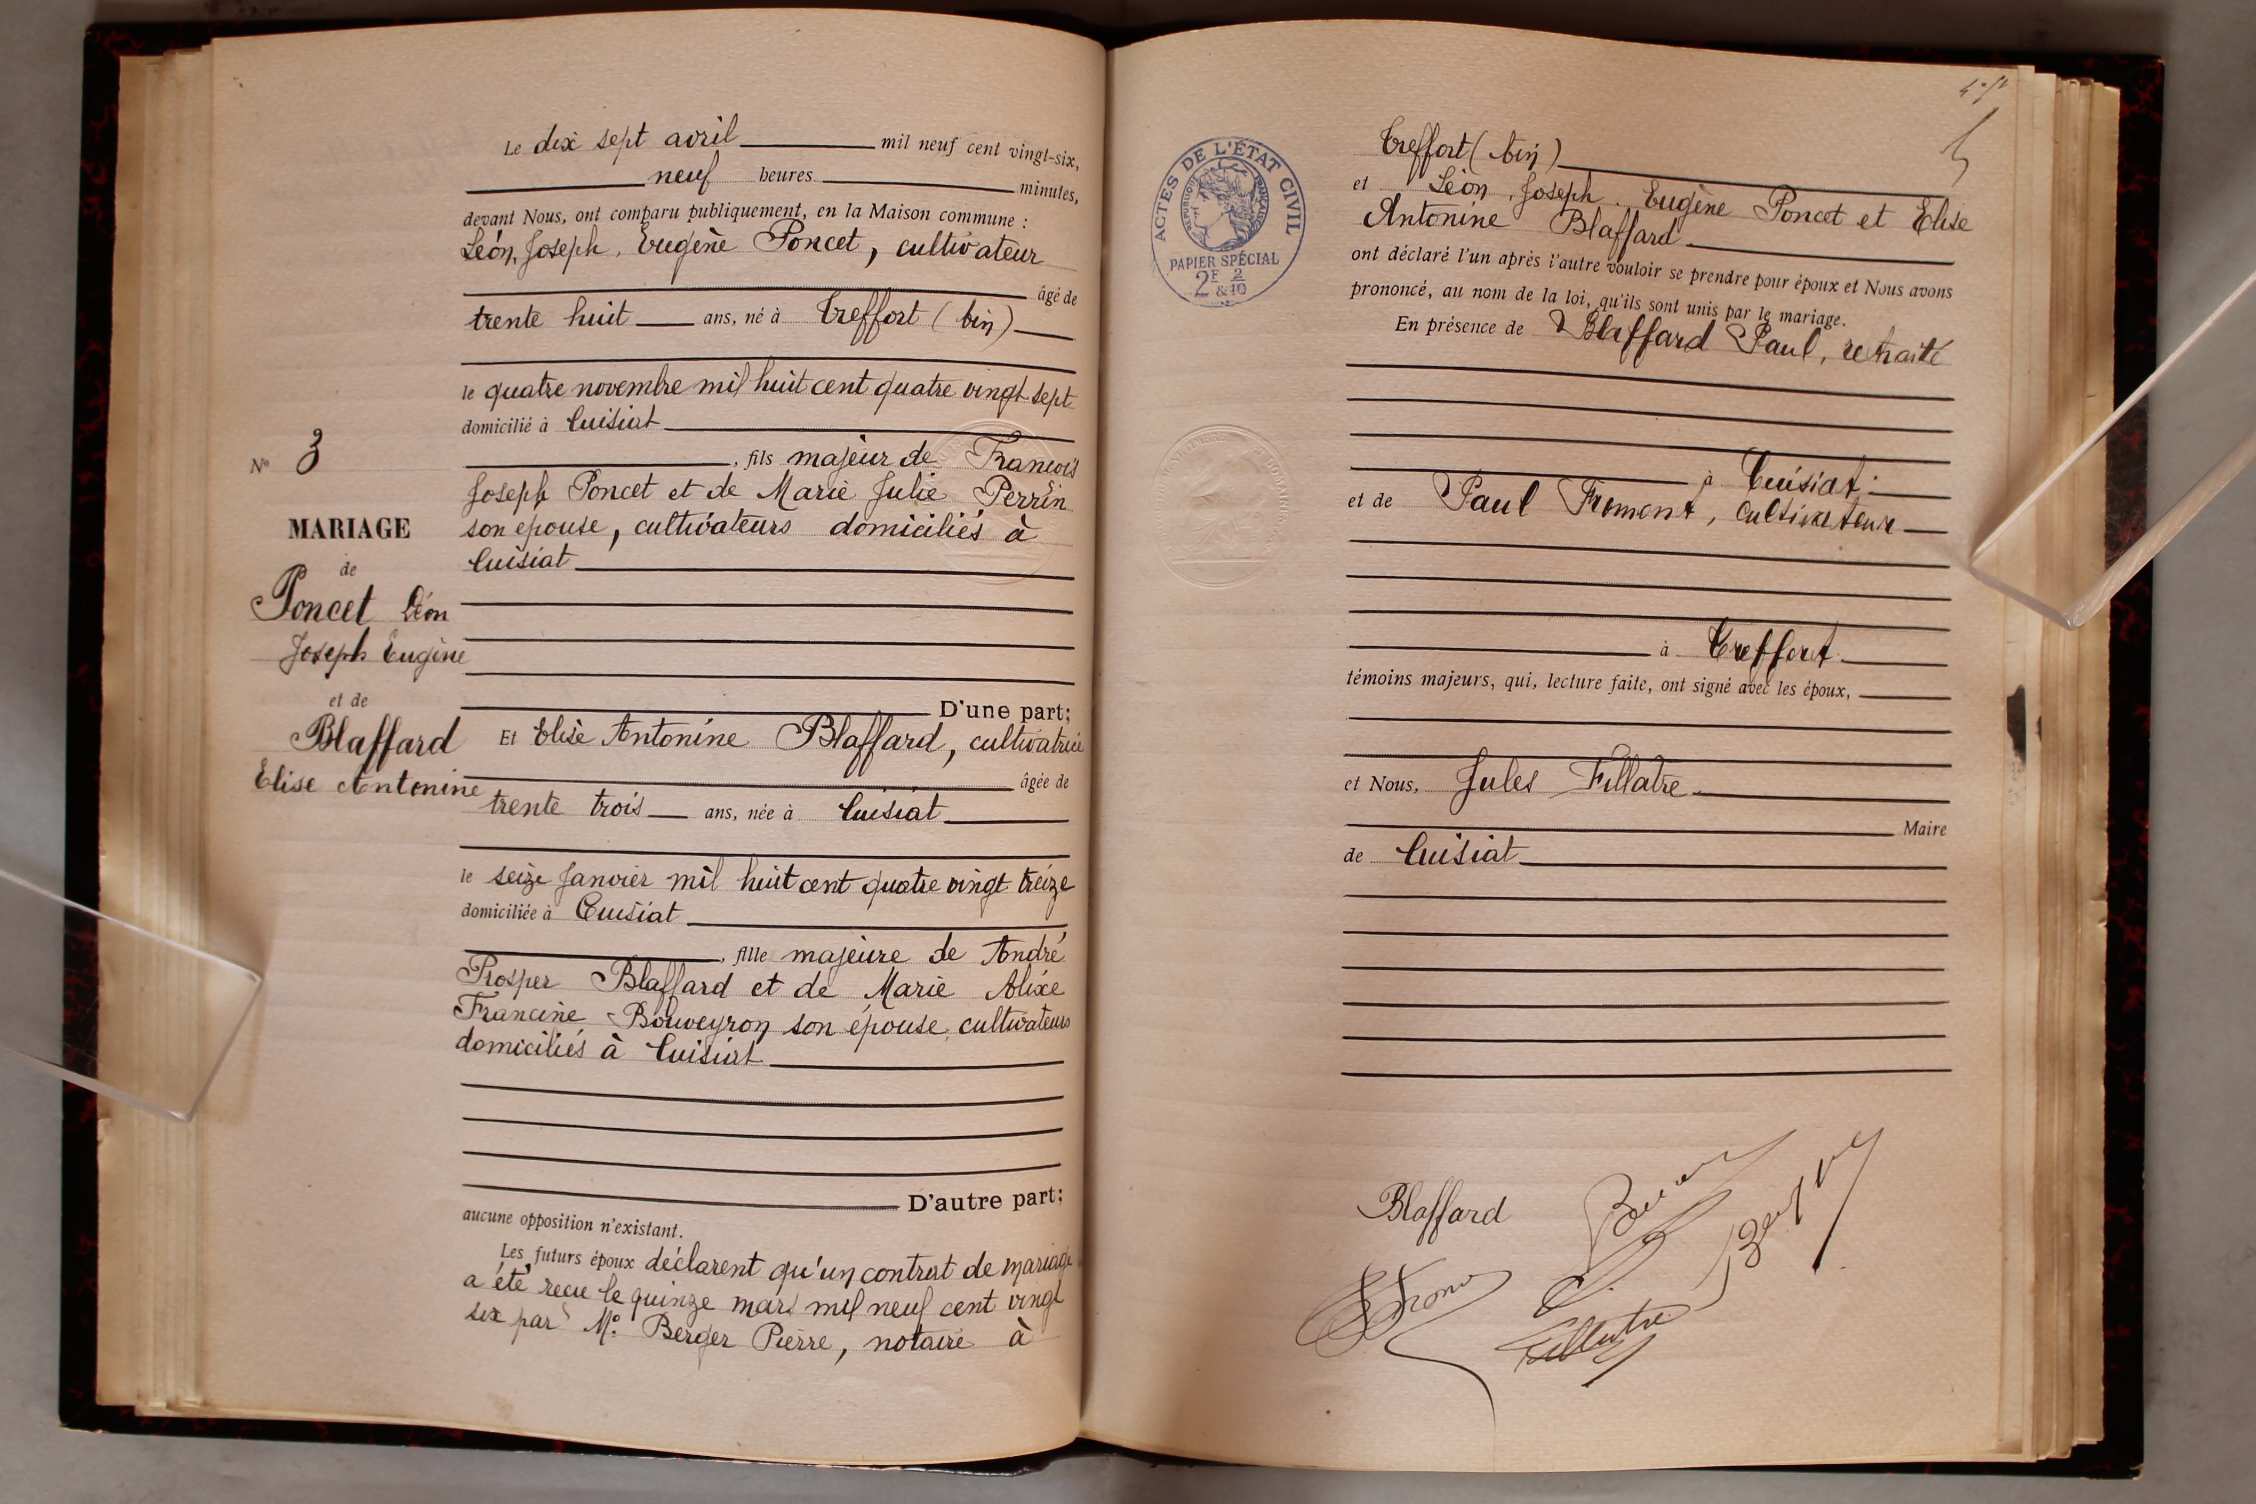 Le dix sept avril mil neuf cent vingt-six,
neuf heures minutes,
devant Nous, ont comparu publiquement, en la Maison commune :
Léon, Joseph, Eugène Poncet, cultivateur
âgé de
trente huit ans, né à Treffort (Ain)
le quatre novembre mil huit cent quatre vingt sept
domicilié à Cuisiat
, fils majeur de François
Joseph Poncet et de Marie Julie Perrin
son epouse, cultivateurs domiciliés à
Cuisiat
N° 3
MARIAGE
de
Poncet Léon
Joseph Eugène
et de
Blaffard
Elise Antonine
D'une part;
Et Elise Antonine Blaffard, cultivatrice
âgée de
trente trois ans, née à Cuisiat
le seize Janvier mil huit cent quatre vingt treize
domiciliée à Cuisiat
, fille majeure de André
Prosper Blaffard et de Marie Alixe
Francine Bouveyron son épouse, cultivateurs
domiciliés à Cuisiat
D'autre part;
aucune opposition n'existant.
Les futurs époux déclarent qu'un contrat de mariage
a été recu le quinze mars mil neuf cent vingt
six par Me. Berger Pierre, notaire à
ACTES DE L'ÉTAT CIVIL
RÉPUBLIQUE FRANÇAISE
PAPIER SPÉCIAL
2F & 2/10
Treffort (Ain)
et Léon, Joseph, Eugène Poncet et Elise
Antonine Blaffard
ont déclaré l'un après l'autre vouloir se prendre pour époux et Nous avons
prononcé, au nom de la loi, qu'ils sont unis par le mariage.
En présence de Blaffard Paul, retraité
à Cuisiat
et de Paul Froment, cultivateur
à Treffort
témoins majeurs, qui, lecture faite, ont signé avec les époux,
et Nous, Jules Fillatre
Maire
de Cuisiat
Blaffard
Fillatre